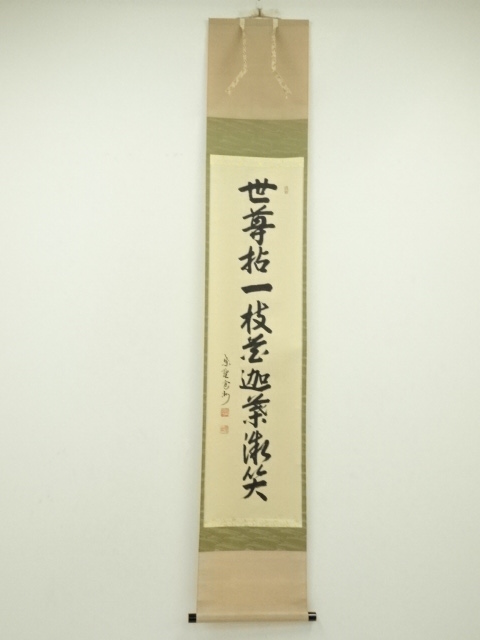 世尊拈一枝花迦葉微笑